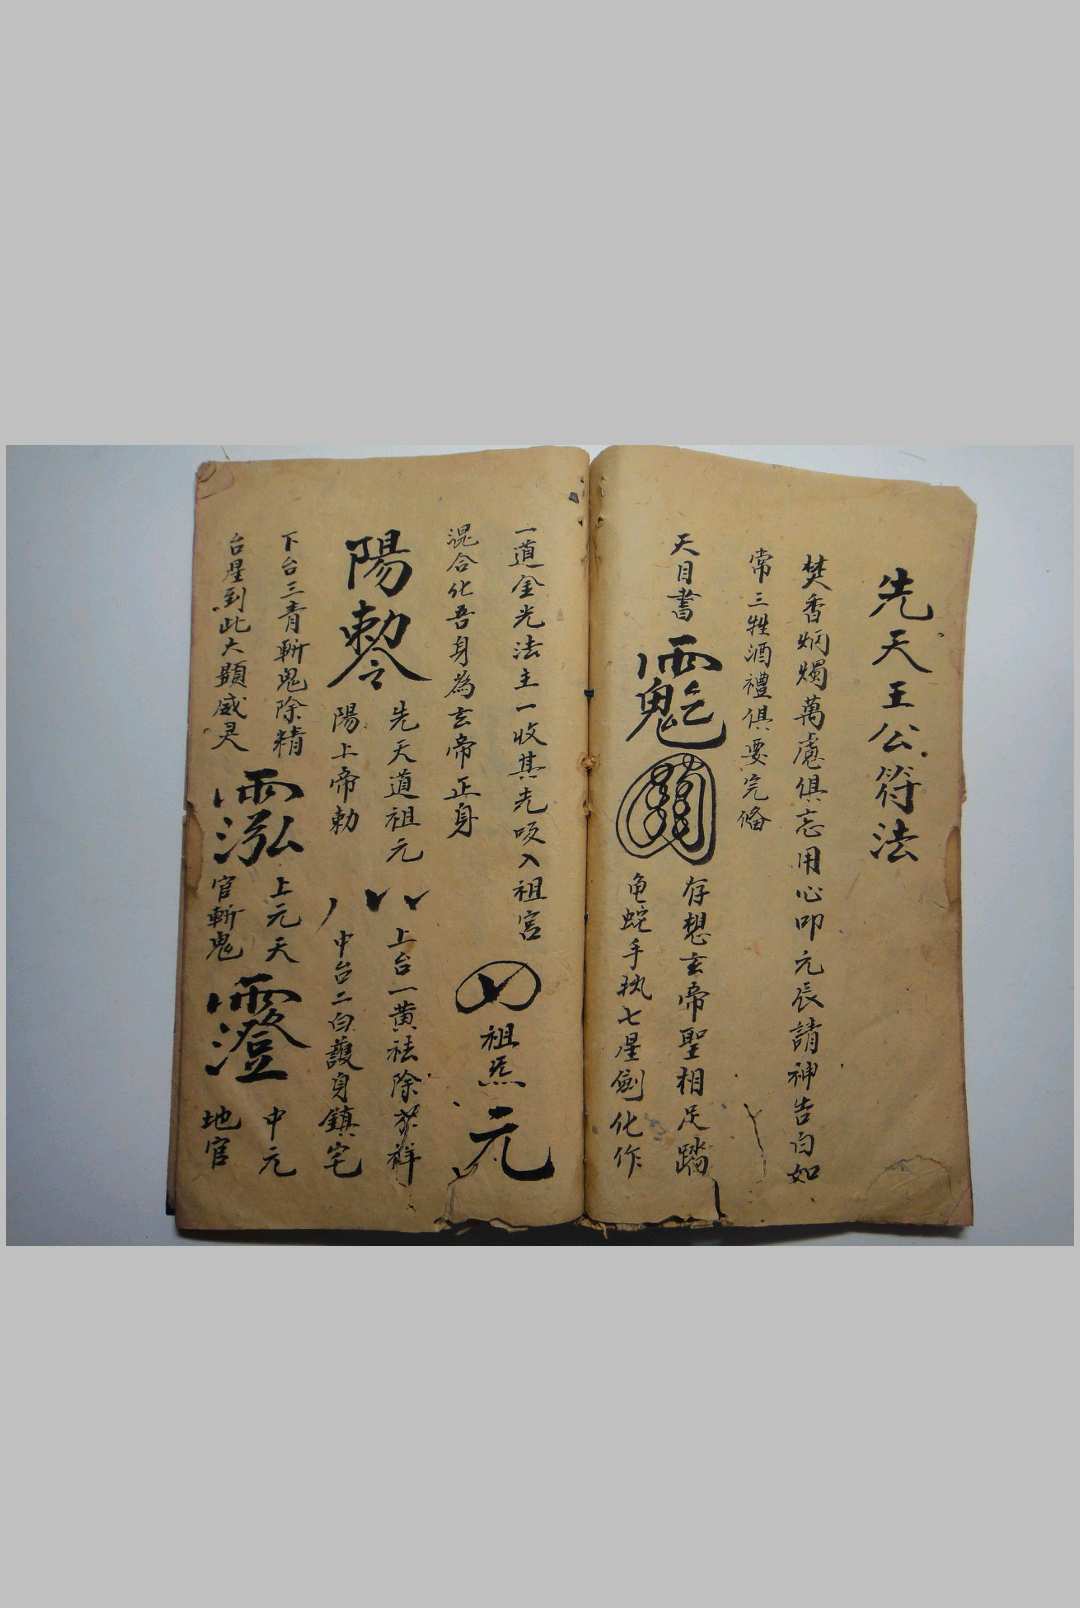 先天王公符法
焚香炳燭萬慮俱忘用心叩元辰請神告白如
常三牲酒禮俱要完俻
天目書
存想玄帝聖相足踏
龟蛇手执七星劍化作
一道金光法主一收其光吸入祖宫
祖炁
元
混合化吾身為玄帝正身
陽勅令
先天道祖元
陽上帝勅
上台一黄祛除不祥
中台二白護身鎮宅
下台三青斬鬼除精
台星到此大顯威灵
上元天
官斬鬼
中元
地官